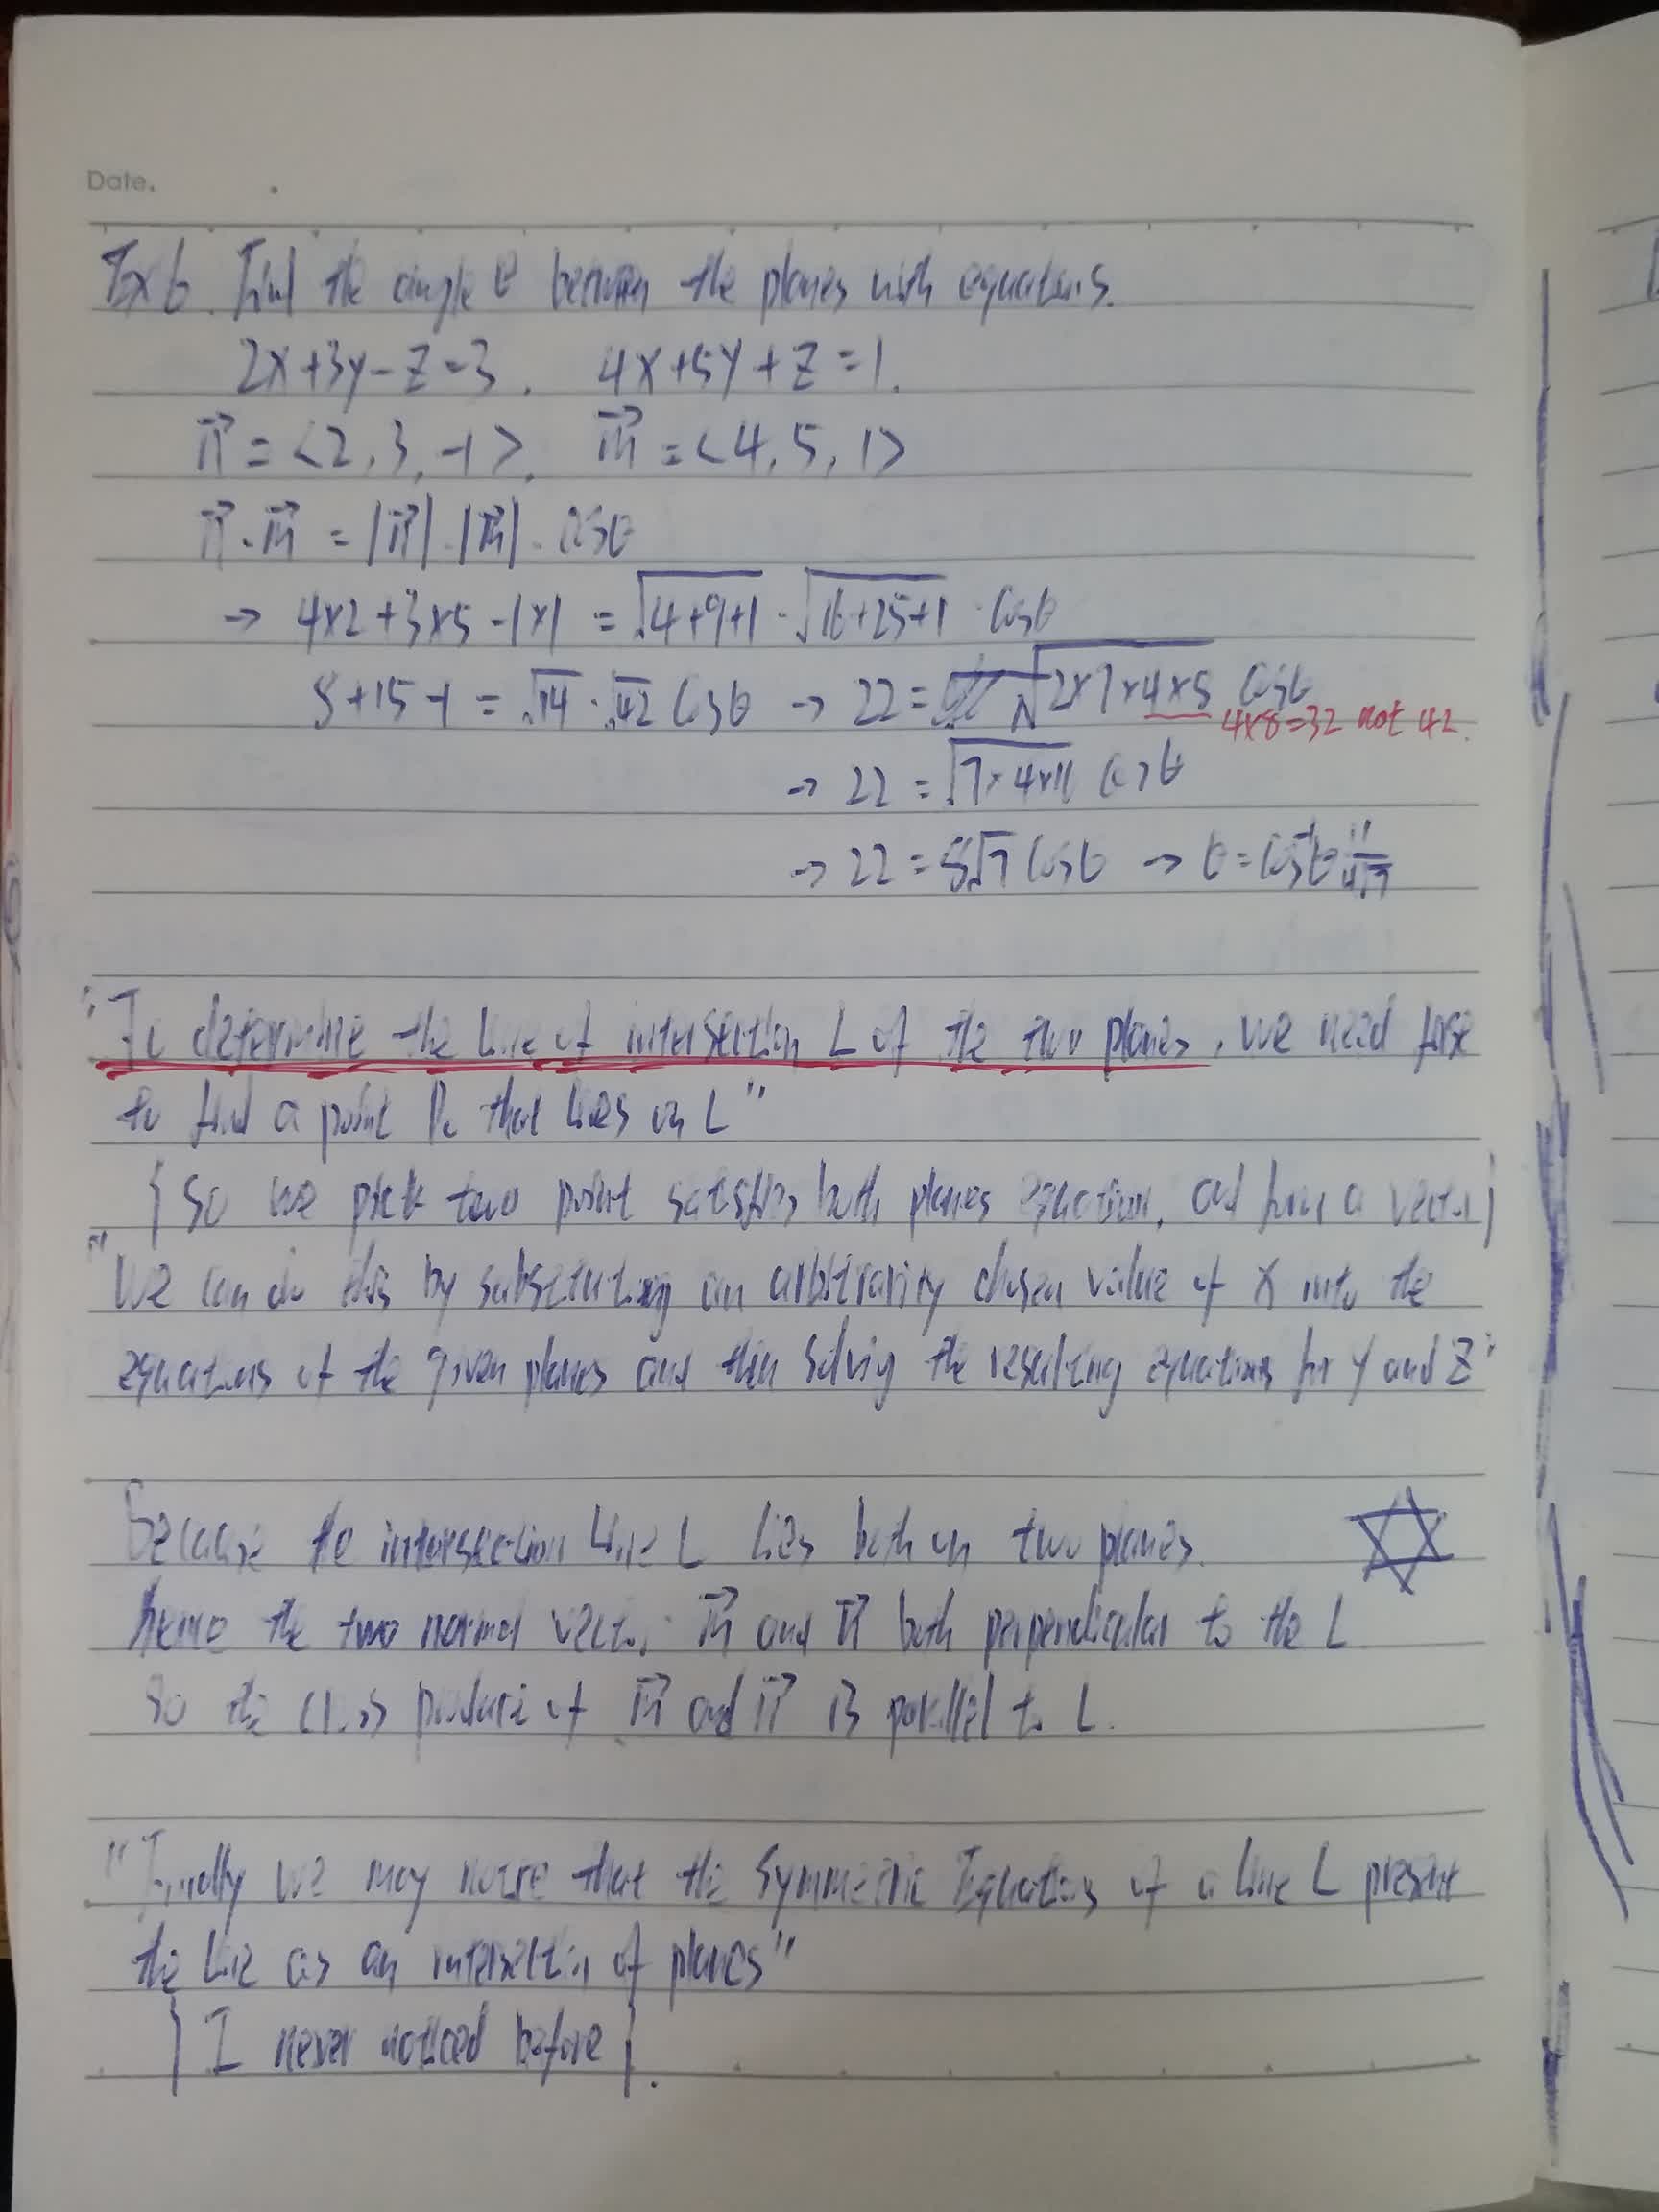 Date.
Ex 6. Find the angle θ between the planes with equations.
2x+3y-z=3. 4x+5y+z=1.
n⃗ = <2, 3, -1>, m⃗ = <4, 5, 1>
n⃗ · m⃗ = |n⃗| · |m⃗| · cosθ
→ 4×2 + 3×5 - 1×1 = √4+9+1 · √16+25+1 · cosθ
8+15-1 = √14 · √42 cosθ → 22 = √2×7×4×8 cosθ
4×8=32 not 42.
→ 22 = √7×4×16 cosθ
→ 22 = 8√7 cosθ → θ = cos⁻¹θ 11/4√7
"To determine the line of intersection L of the two planes, we need first
to find a point P₀ that lies on L"
{ So we pick two point satisfies both planes equation, and form a vector}
"We can do this by substituting an arbitrarily chosen value of x into the
equations of the given planes and then solving the resulting equations for y and z"
Because the intersection line L lies both on two planes.
hence the two normal vector m⃗ and n⃗ both perpendicular to the L
So the cross product of m⃗ and n⃗ is parallel to L.
"Finally we may notice that the Symmetric Equations of a line L present
the line as an intersection of planes"
} I never noticed before }.